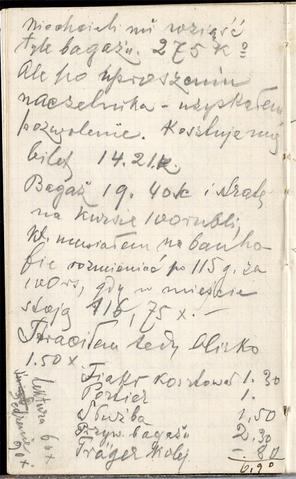 Niechcieli mi wziąść
tyle bagażu. 275 K º
Ale po uproszeniu
naczelnika - uzyskałem
pozwolenie. Kosztuje mię
bilet 14.21 k.
Bagaż 19.40 k i stratę
na kursie 100 rubli
musiałem na banho-
fie rozmienić po 115 g. za
100 rs, gdy w mieście
stoją 116,75 x. -
Straciłem tedy blizko
1.50 x
Fjakr kosztował 1.30
Portier 1.
Służba 1,50
Przyw. bagażu 2.30
Träger kolej - 80
6,90
Lektura 60 x
90 x